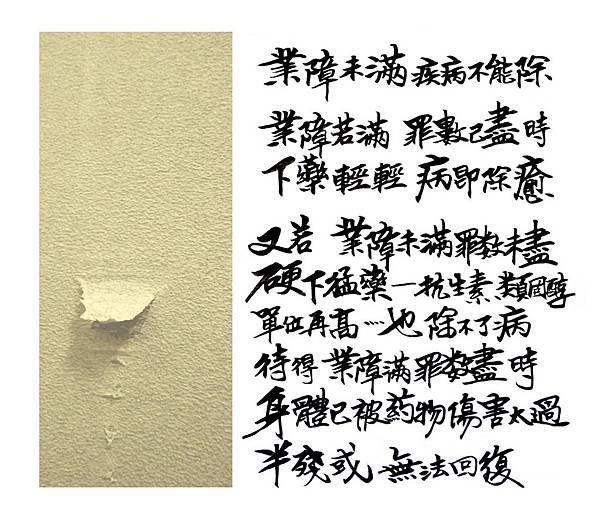 業障未滿 疾病不能除
業障若滿 罪數已盡時
下藥輕輕 病即除癒
又若 業障未滿罪数未盡
硬下猛藥—抗生素 類固醇
單位再高…也除不了病
待得 業障滿罪数盡時
身體已被药物傷害太過
半殘或 無法回復